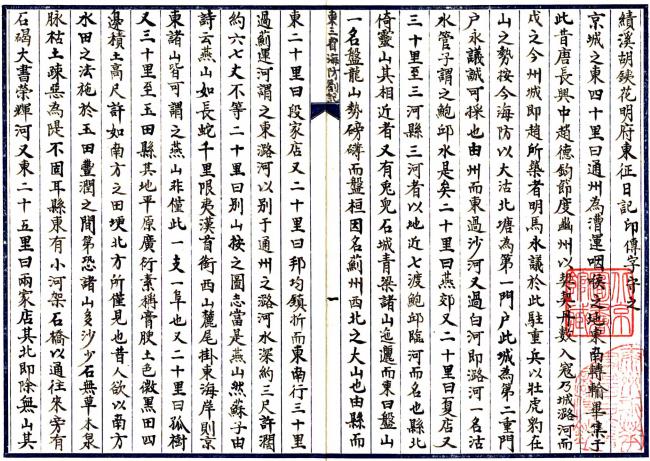 績溪胡鐵花明府東征日記 印傳字守之
京城之東四十里曰通州為漕運咽喉之地東南轉輸畢集于
此昔唐長興中趙德鈞節度幽州以契丹數入寇乃城潞河而
戍之今州城即趙所築者明馬永議於此駐重兵以壯虎豹在
山之勢按今海防以大沽北塘為第一門户此城為第二重門
户永議誠可採也由州而東過沙河又過白河即潞河一名沽
水管子謂之鮑邱水是矣二十里曰燕郊又二十里曰夏店又
三十里至三河縣三河者以地近七渡鮑邱臨河而名也縣北
倚靈山其相近者又有兎兒石城青梁諸山迤邐而東曰盤山
一名盤龍山勢磅礴而盤桓因名薊州西北之大山也由縣而
東三省海防劄記
一
東二十里曰段家店又二十里曰邦均鎮折而東南行三十里
過薊運河謂之東潞河以别于通州之潞河水深約三尺許濶
約六七丈不等二十里曰别山按之圖志當是燕山然蘇子由
詩云燕山如長蛇千里限夷漢首銜西山麓尾掛東海岸則京
東諸山皆可謂之燕山非僅此一支一阜也又二十里曰孤樹
又三十里至玉田縣其地平原廣衍素稱膏腴土色微黑田四
邊積土高尺許如南方之田埂北方所僅見也昔人欲以南方
水田之法施於玉田豐潤之間第恐諸山多沙少石無草木泉
脉枯土疎惡為隄不固耳縣東有小河架石橋以通往來旁有
石碣大書榮輝河又東二十五里曰兩家店其北即除無山其